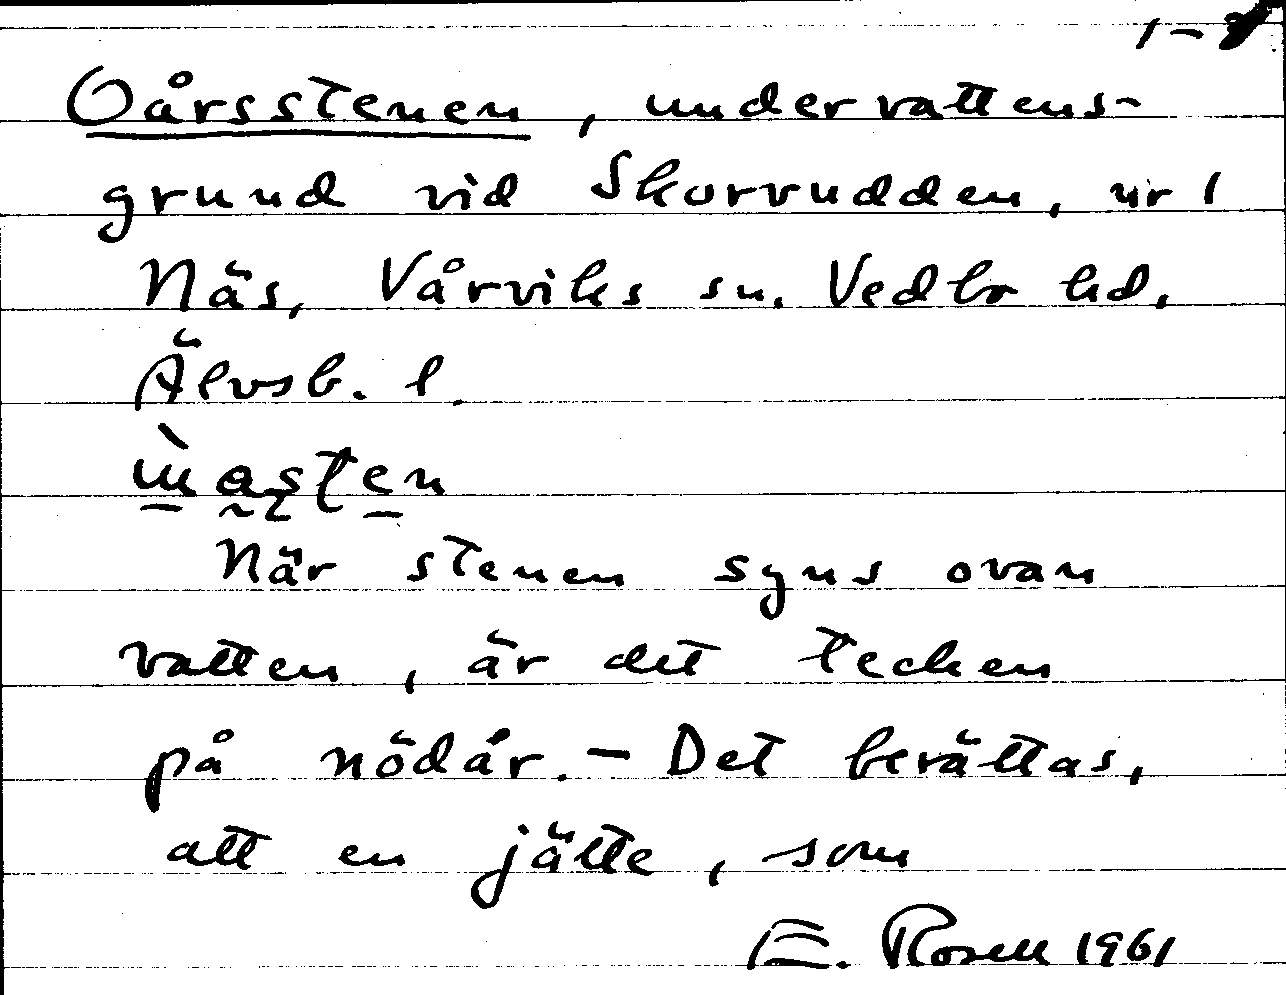 Oårsstenen, undervattens-
grund vid Skorvudden, nr 1
Näs, Vårviks sn. Vedbo hd.
Älvsb. l.
När stenen syns ovan
vatten, är det tecken
på nödår. – Det berättas,
att en jätte, som
E. Rosell 1961